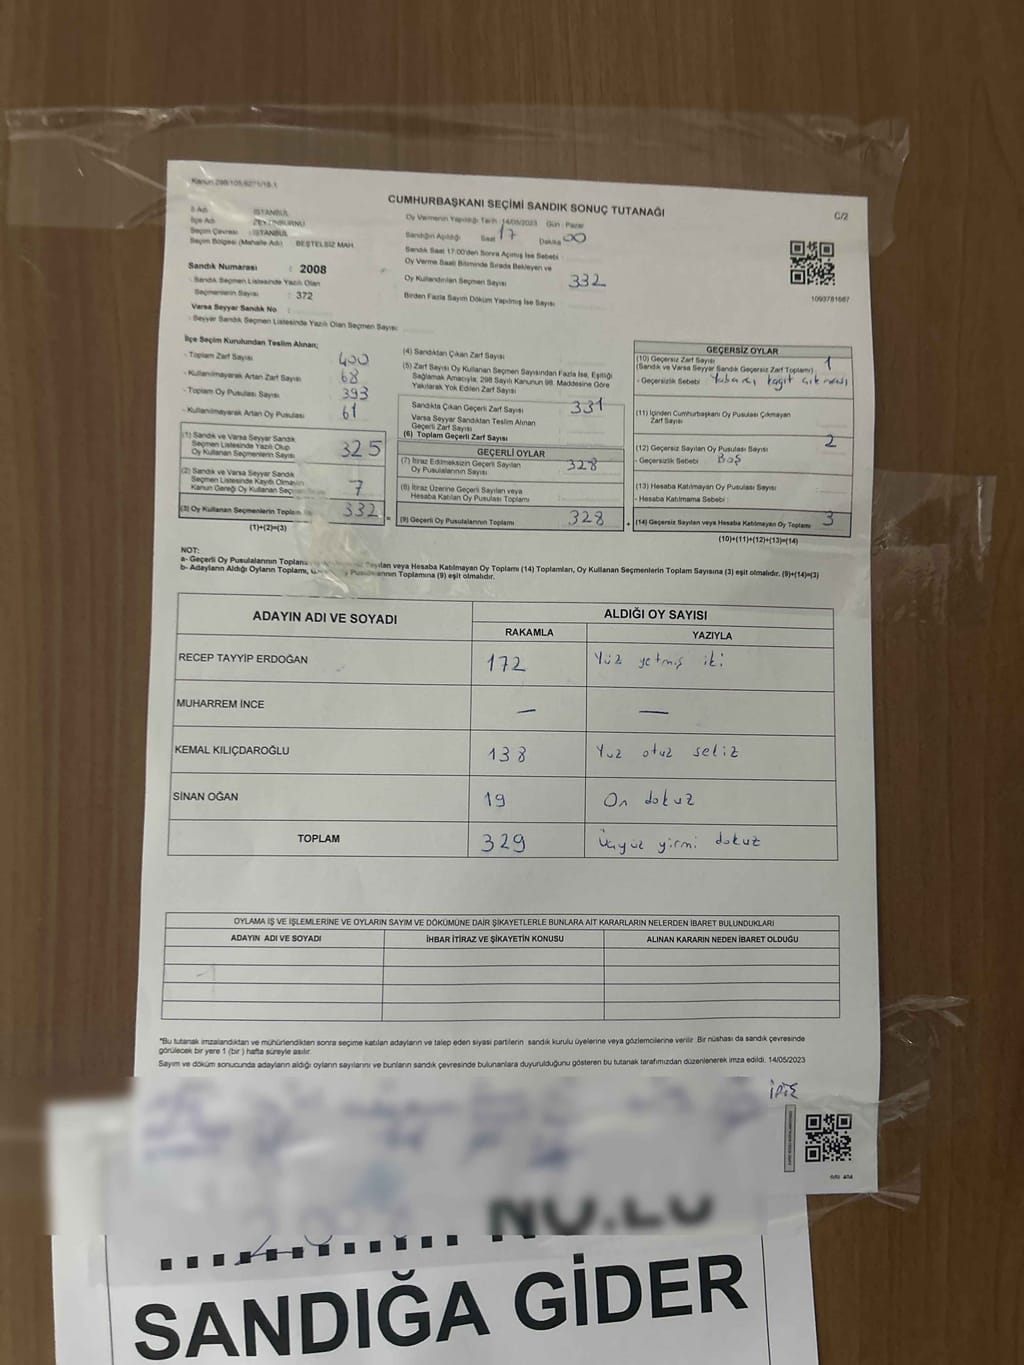 Kanun 298/105,6271/18-1
CUMHURBAŞKANI SEÇİMİ SANDIK SONUÇ TUTANAĞI
C/2
İl Adı : İSTANBUL
İlçe Adı : ZEYTİNBURNU
Seçim Çevresi : İSTANBUL
Seçim Bölgesi (Mahalle Adı) BEŞTELSİZ MAH.
Sandık Numarası : 2008
- Sandık Seçmen Listesinde Yazılı Olan
Seçmenlerin Sayısı : 372
Varsa Seyyar Sandık No :
- Seyyar Sandık Seçmen Listesinde Yazılı Olan Seçmen Sayısı:
Oy Vermenin Yapıldığı Tarih :14/05/2023 Gün : Pazar
Sandığın Açıldığı Saat 17 Dakika 00
Sandık Saat 17:00'den Sonra Açılmış İse Sebebi :
Oy Verme Saati Bitiminde Sırada Bekleyen ve
Oy Kullandırılan Seçmen Sayısı 332
Birden Fazla Sayım Döküm Yapılmış İse Sayısı
1093781667
İlçe Seçim Kurulundan Teslim Alınan;
- Toplam Zarf Sayısı 400
- Kullanılmayarak Artan Zarf Sayısı 68
- Toplam Oy Pusulası Sayısı 393
- Kullanılmayarak Artan Oy Pusulası 61
(1) Sandık ve Varsa Seyyar Sandık
Seçmen Listesinde Yazılı Olup
Oy Kullanan Seçmenlerin Sayısı 325
(2) Sandık ve Varsa Seyyar Sandık
Seçmen Listesinde Kaydı Olmayıp
Kanun Gereği Oy Kullanan 7
(3) Oy Kullanan Seçmenlerin Toplam 332
(1)+(2)=(3)
(4) Sandıktan Çıkan Zarf Sayısı
(5) Zarf Sayısı Oy Kullanan Seçmen Sayısından Fazla İse, Eşitliği
Sağlamak Amacıyla; 298 Sayılı Kanunun 98. Maddesine Göre
Yakılarak Yok Edilen Zarf Sayısı
Sandıkta Çıkan Geçerli Zarf Sayısı 331
Varsa Seyyar Sandıktan Teslim Alınan
Geçerli Zarf Sayısı
(6) Toplam Geçerli Zarf Sayısı
GEÇERLİ OYLAR
(7) İtiraz Edilmeksizin Geçerli Sayılan
Oy Pusulalarının Sayısı 328
(8) İtiraz Üzerine Geçerli Sayılan veya
Hesaba Katılan Oy Pusulası Toplamı
(9) Geçerli Oy Pusulalarının Toplamı 328
GEÇERSİZ OYLAR
(10) Geçersiz Zarf Sayısı 1
(Sandık ve Varsa Seyyar Sandık Geçersiz Zarf Toplamı)
- Geçersizlik Sebebi Yabancı kağıt çıkması
(11) İçinden Cumhurbaşkanı Oy Pusulası Çıkmayan
Zarf Sayısı
(12) Geçersiz Sayılan Oy Pusulası Sayısı 2
- Geçersizlik Sebebi Boş
(13) Hesaba Katılmayan Oy Pusulası Sayısı
- Hesaba Katılmama Sebebi :
(14) Geçersiz Sayılan veya Hesaba Katılmayan Oy Toplamı 3
(10)+(11)+(12)+(13)=(14)
NOT:
a- Geçerli Oy Pusulalarının Toplamı Sayılan veya Hesaba Katılmayan Oy Toplamı (14) Toplamları, Oy Kullanan Seçmenlerin Toplam Sayısına (3) eşit olmalıdır. (9)+(14)=(3)
b- Adayların Aldığı Oyların Toplamı, Toplamına (9) eşit olmalıdır.
ADAYIN ADI VE SOYADI ALDIĞI OY SAYISI
RAKAMLA YAZIYLA
RECEP TAYYİP ERDOĞAN 172 Yüz yetmiş iki
MUHARREM İNCE — —
KEMAL KILIÇDAROĞLU 138 Yuz otuz sekiz
SİNAN OĞAN 19 On dokuz
TOPLAM 329 Üçyüz yirmi dokuz
OYLAMA İŞ VE İŞLEMLERİNE VE OYLARIN SAYIM VE DÖKÜMÜNE DAİR ŞİKAYETLERLE BUNLARA AİT KARARLARIN NELERDEN İBARET BULUNDUKLARI
ADAYIN ADI VE SOYADI İHBAR İTİRAZ VE ŞİKAYETİN KONUSU ALINAN KARARIN NEDEN İBARET OLDUĞU
*Bu tutanak imzalandıktan ve mühürlendikten sonra seçime katılan adayların ve talep eden siyasi partilerin sandık kurulu üyelerine veya gözlemcilerine verilir. Bir nüshası da sandık çevresinde
görülecek bir yere 1 (bir ) hafta süreyle asılır.
Sayım ve döküm sonucunda adayların aldığı oyların sayılarını ve bunların sandık çevresinde bulunanlara duyurulduğunu gösteren bu tutanak tarafımızdan düzenlenerek imza edildi. 14/05/2023
SANDIĞA GİDER